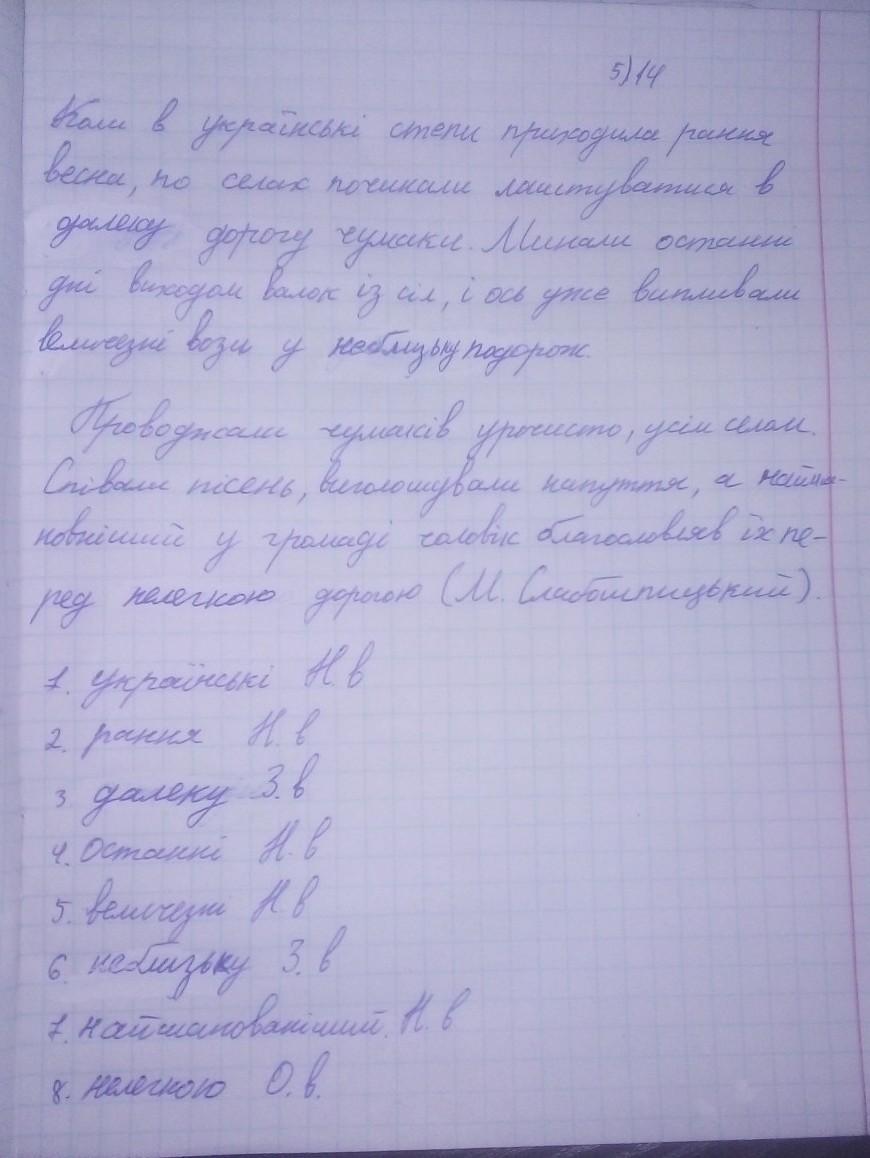 5)14
Коли в українські степи приходила рання
весна, по селах починали лаштуватися в
далеку дорогу чумаки. Минали останні
дні виходом валок із сіл, і ось уже випливали
величезні вози у неблизьку подорож.
Проводжали чумаків урочисто, усім селом.
Співали пісень, виголошували напуття, а найша-
новніший у громаді чоловік благословляв їх пе-
ред нелегкою дорогою (М. Слабошпицький).
1. українські Н. в
2. рання Н. в
3 далеку З. в
4. останні Н. в
5. величезні Н в
6. неблизьку З. в
7. найшанованіший. Н. в
8. нелегкою О. в.